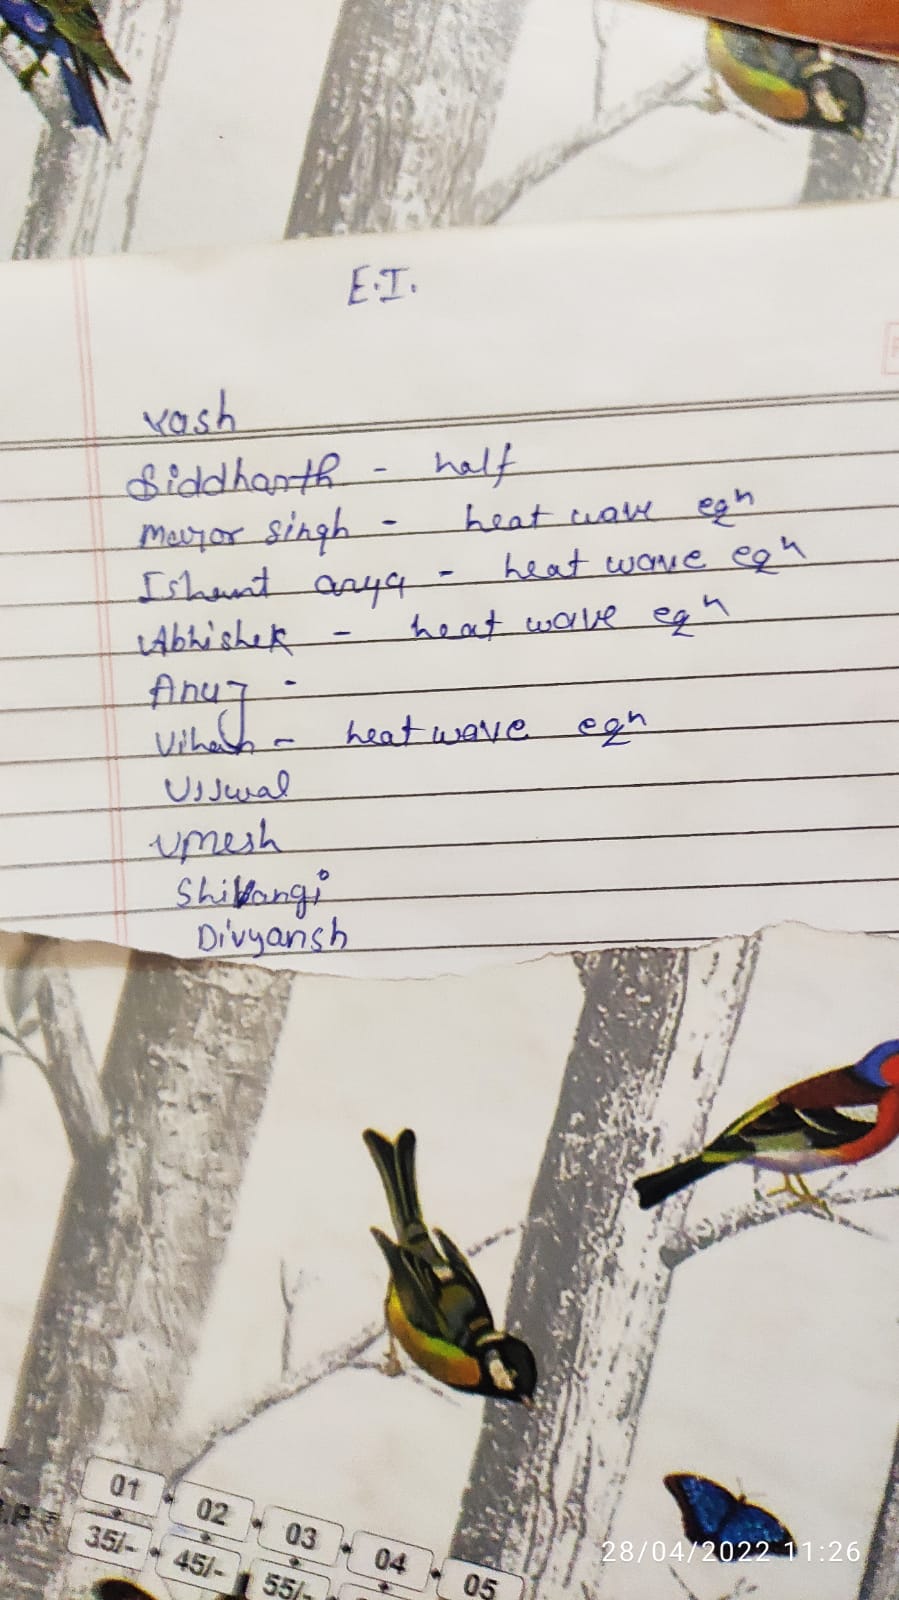 E.I.
Yash
Siddharth - half
Mayor Singh - heat wave eqn
Ishant arya - heat wave eqn
Abhishek - heat wave eqn
Anuj -
heat wave eqn
Ujjwal
Umesh
Shivangi
Divyansh
01 02 03 04 05
35/- 45/- 55/-
28/04/2022 11:26